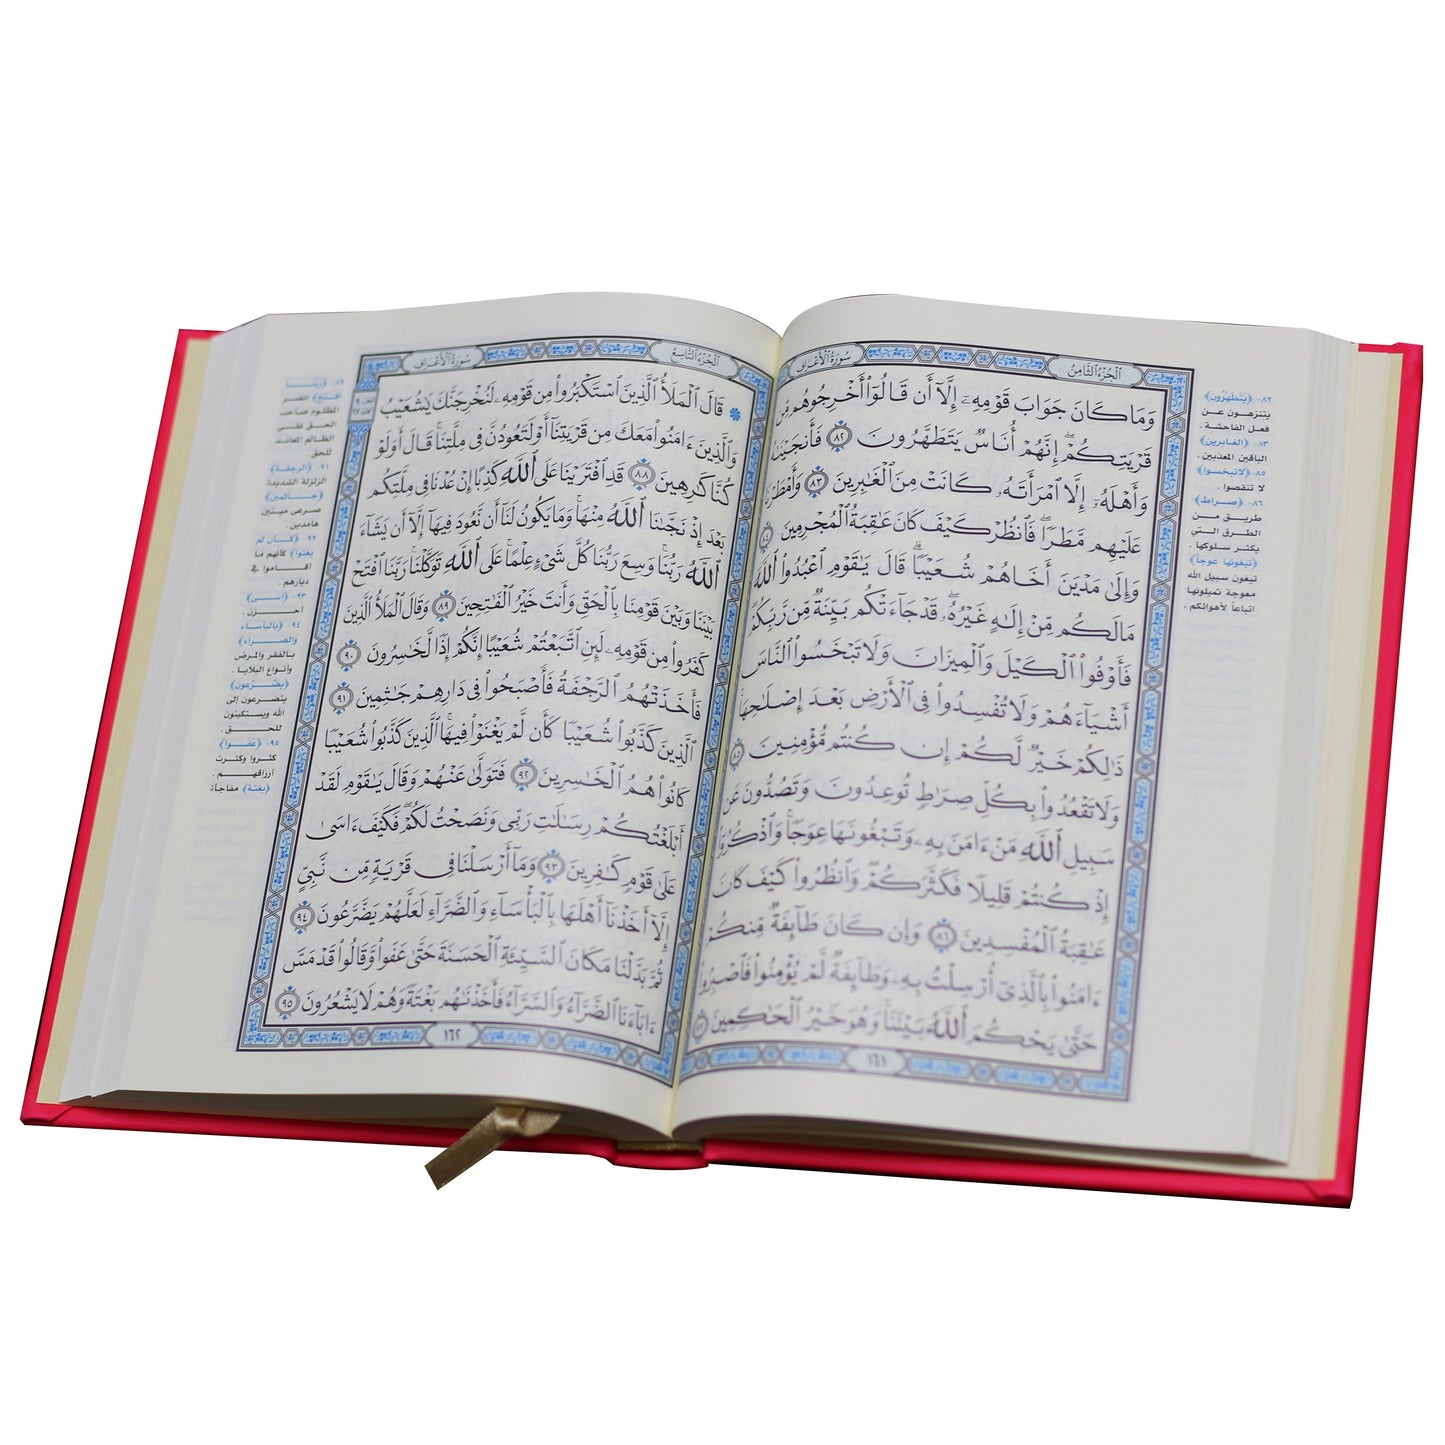 الجزء الثامن
سورة الأعراف
وَمَا كَانَ جَوَابَ قَوْمِهِۦٓ إِلَّآ أَن قَالُوٓا۟ أَخْرِجُوهُم مِّن
قَرْيَتِكُمْ ۖ إِنَّهُمْ أُنَاسٌ يَتَطَهَّرُونَ ٨٢ فَأَنجَيْنَٰهُ
وَأَهْلَهُۥٓ إِلَّا ٱمْرَأَتَهُۥ كَانَتْ مِنَ ٱلْغَٰبِرِينَ ٨٣ وَأَمْطَرْنَا
عَلَيْهِم مَّطَرًا ۖ فَٱنظُرْ كَيْفَ كَانَ عَٰقِبَةُ ٱلْمُجْرِمِينَ ٨٤
وَإِلَىٰ مَدْيَنَ أَخَاهُمْ شُعَيْبًا ۗ قَالَ يَٰقَوْمِ ٱعْبُدُوا۟ ٱللَّهَ
مَا لَكُم مِّنْ إِلَٰهٍ غَيْرُهُۥ ۖ قَدْ جَآءَتْكُم بَيِّنَةٌ مِّن رَّبِّكُمْ ۖ
فَأَوْفُوا۟ ٱلْكَيْلَ وَٱلْمِيزَانَ وَلَا تَبْخَسُوا۟ ٱلنَّاسَ
أَشْيَآءَهُمْ وَلَا تُفْسِدُوا۟ فِى ٱلْأَرْضِ بَعْدَ إِصْلَٰحِهَا ۚ
ذَٰلِكُمْ خَيْرٌ لَّكُمْ إِن كُنتُم مُّؤْمِنِينَ ٨٥
وَلَا تَقْعُدُوا۟ بِكُلِّ صِرَٰطٍ تُوعِدُونَ وَتَصُدُّونَ عَن
سَبِيلِ ٱللَّهِ مَنْ ءَامَنَ بِهِۦ وَتَبْغُونَهَا عِوَجًا ۚ وَٱذْكُرُوٓا۟
إِذْ كُنتُمْ قَلِيلًا فَكَثَّرَكُمْ ۖ وَٱنظُرُوا۟ كَيْفَ كَانَ
عَٰقِبَةُ ٱلْمُفْسِدِينَ ٨٦ وَإِن كَانَ طَآئِفَةٌ مِّنكُمْ
ءَامَنُوا۟ بِٱلَّذِىٓ أُرْسِلْتُ بِهِۦ وَطَآئِفَةٌ لَّمْ يُؤْمِنُوا۟ فَٱصْبِرُوا۟
حَتَّىٰ يَحْكُمَ ٱللَّهُ بَيْنَنَا ۚ وَهُوَ خَيْرُ ٱلْحَٰكِمِينَ ٨٧
١٦١
٨٢- ﴿يتطهرون﴾
يتنزهون عن
فعل الفاحشة .
٨٣- ﴿الغابرين﴾
الباقين المعذبين .
٨٥- ﴿لا تبخسوا﴾
لا تنقصوا .
٨٦- ﴿صراط﴾
طريق من
الطرق التي
يكثر سلوكها .
﴿تبغونها عوجاً﴾
تبغون سبيل الله
معوجة تميلونها
اتباعاً لأهوائكم .
الجزء التاسع
سورة الأعراف
قَالَ ٱلْمَلَأُ ٱلَّذِينَ ٱسْتَكْبَرُوا۟ مِن قَوْمِهِۦ لَنُخْرِجَنَّكَ يَٰشُعَيْبُ
وَٱلَّذِينَ ءَامَنُوا۟ مَعَكَ مِن قَرْيَتِنَآ أَوْ لَتَعُودُنَّ فِى مِلَّتِنَا ۚ قَالَ أَوَلَوْ
كُنَّا كَٰرِهِينَ ٨٨ قَدِ ٱفْتَرَيْنَا عَلَى ٱللَّهِ كَذِبًا إِنْ عُدْنَا فِى مِلَّتِكُم
بَعْدَ إِذْ نَجَّىٰنَا ٱللَّهُ مِنْهَا ۚ وَمَا يَكُونُ لَنَآ أَن نَّعُودَ فِيهَآ إِلَّآ أَن يَشَآءَ
ٱللَّهُ رَبُّنَا ۚ وَسِعَ رَبُّنَا كُلَّ شَىْءٍ عِلْمًا ۚ عَلَى ٱللَّهِ تَوَكَّلْنَا ۚ رَبَّنَا ٱفْتَحْ
بَيْنَنَا وَبَيْنَ قَوْمِنَا بِٱلْحَقِّ وَأَنتَ خَيْرُ ٱلْفَٰتِحِينَ ٨٩ وَقَالَ ٱلْمَلَأُ ٱلَّذِينَ
كَفَرُوا۟ مِن قَوْمِهِۦ لَئِنِ ٱتَّبَعْتُمْ شُعَيْبًا إِنَّكُمْ إِذًا لَّخَٰسِرُونَ ٩٠
فَأَخَذَتْهُمُ ٱلرَّجْفَةُ فَأَصْبَحُوا۟ فِى دَارِهِمْ جَٰثِمِينَ ٩١
ٱلَّذِينَ كَذَّبُوا۟ شُعَيْبًا كَأَن لَّمْ يَغْنَوْا۟ فِيهَا ۚ ٱلَّذِينَ كَذَّبُوا۟ شُعَيْبًا
كَانُوا۟ هُمُ ٱلْخَٰسِرِينَ ٩٢ فَتَوَلَّىٰ عَنْهُمْ وَقَالَ يَٰقَوْمِ لَقَدْ
أَبْلَغْتُكُمْ رِسَٰلَٰتِ رَبِّى وَنَصَحْتُ لَكُمْ ۖ فَكَيْفَ ءَاسَىٰ
عَلَىٰ قَوْمٍ كَٰفِرِينَ ٩٣ وَمَآ أَرْسَلْنَا فِى قَرْيَةٍ مِّن نَّبِىٍّ
إِلَّآ أَخَذْنَآ أَهْلَهَا بِٱلْبَأْسَآءِ وَٱلضَّرَّآءِ لَعَلَّهُمْ يَضَّرَّعُونَ ٩٤
ثُمَّ بَدَّلْنَا مَكَانَ ٱلسَّيِّئَةِ ٱلْحَسَنَةَ حَتَّىٰ عَفَوا۟ وَّقَالُوا۟ قَدْ مَسَّ
ءَابَآءَنَا ٱلضَّرَّآءُ وَٱلسَّرَّآءُ فَأَخَذْنَٰهُم بَغْتَةً وَهُمْ لَا يَشْعُرُونَ ٩٥
١٦٢
٨٩- ﴿ربنا
افتح﴾ انصر
المظلوم صاحب
الحق على
الظالم المعاند
للحق .
٩١- ﴿الرجفة﴾
الزلزلة الشديدة
﴿جاثمين﴾
صرعى ميتين
هامدين .
٩٢- ﴿كأن لم
يغنوا﴾ كأنهم ما
أقاموا في
ديارهم .
٩٣- ﴿آسى﴾
أحزن .
٩٤- ﴿بالبأساء
والضراء﴾
بالفقر والمرض
وأنواع البلايا .
﴿يضرعون﴾
يتضرعون إلى
الله ويستكينون
للحق .
٩٥- ﴿عفوا﴾
كثروا وكثرت
أرزاقهم .
﴿بغتة﴾ مفاجأة